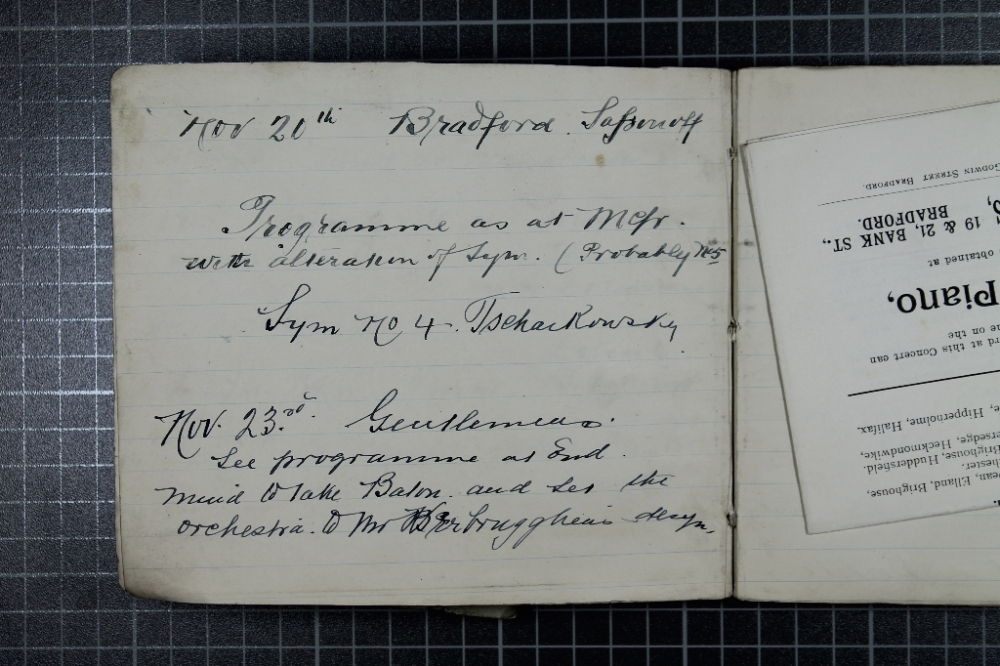 Nov 20th Bradford. Safsonoff
Programme as at Mcfr.
with alteration of Sym. (Probably No 5
Sym No 4. Tschaikowsky
Nov. 23rd. Gentlemens.
See programme at End.
mind to take Baton. and set the
orchestra. to Mr Verbrugghens
GODWIN STREET BRADFORD.
19 & 21, BANK ST.,
BRADFORD.
obtained at
Piano,
on the
at this Concert can
Hipperholme, Halifax.
Heckmondwike,
Brighouse, Huddersfield.
Elland, Brighouse,